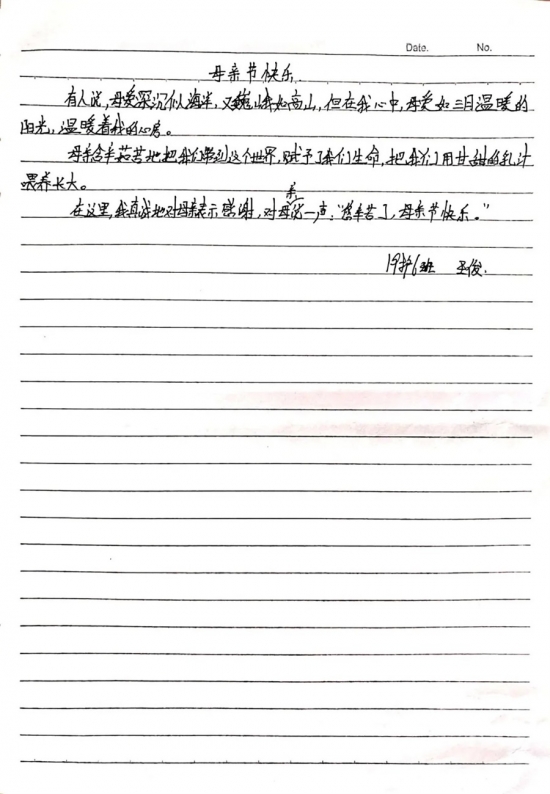 Date. No.
母亲节快乐
有人说,母爱深沉似海洋,又巍峨如高山,但在我心中,母爱如三月温暖的
阳光,温暖着我的心房。
母亲含辛茹苦地把我们带到这个世界,赋予了我们生命,把我们用甘甜的乳汁
喂养长大。
在这里,我真诚地对母亲表示感谢,对母亲说一声:“您辛苦了,母亲节快乐。”
19护6班 圣俊.